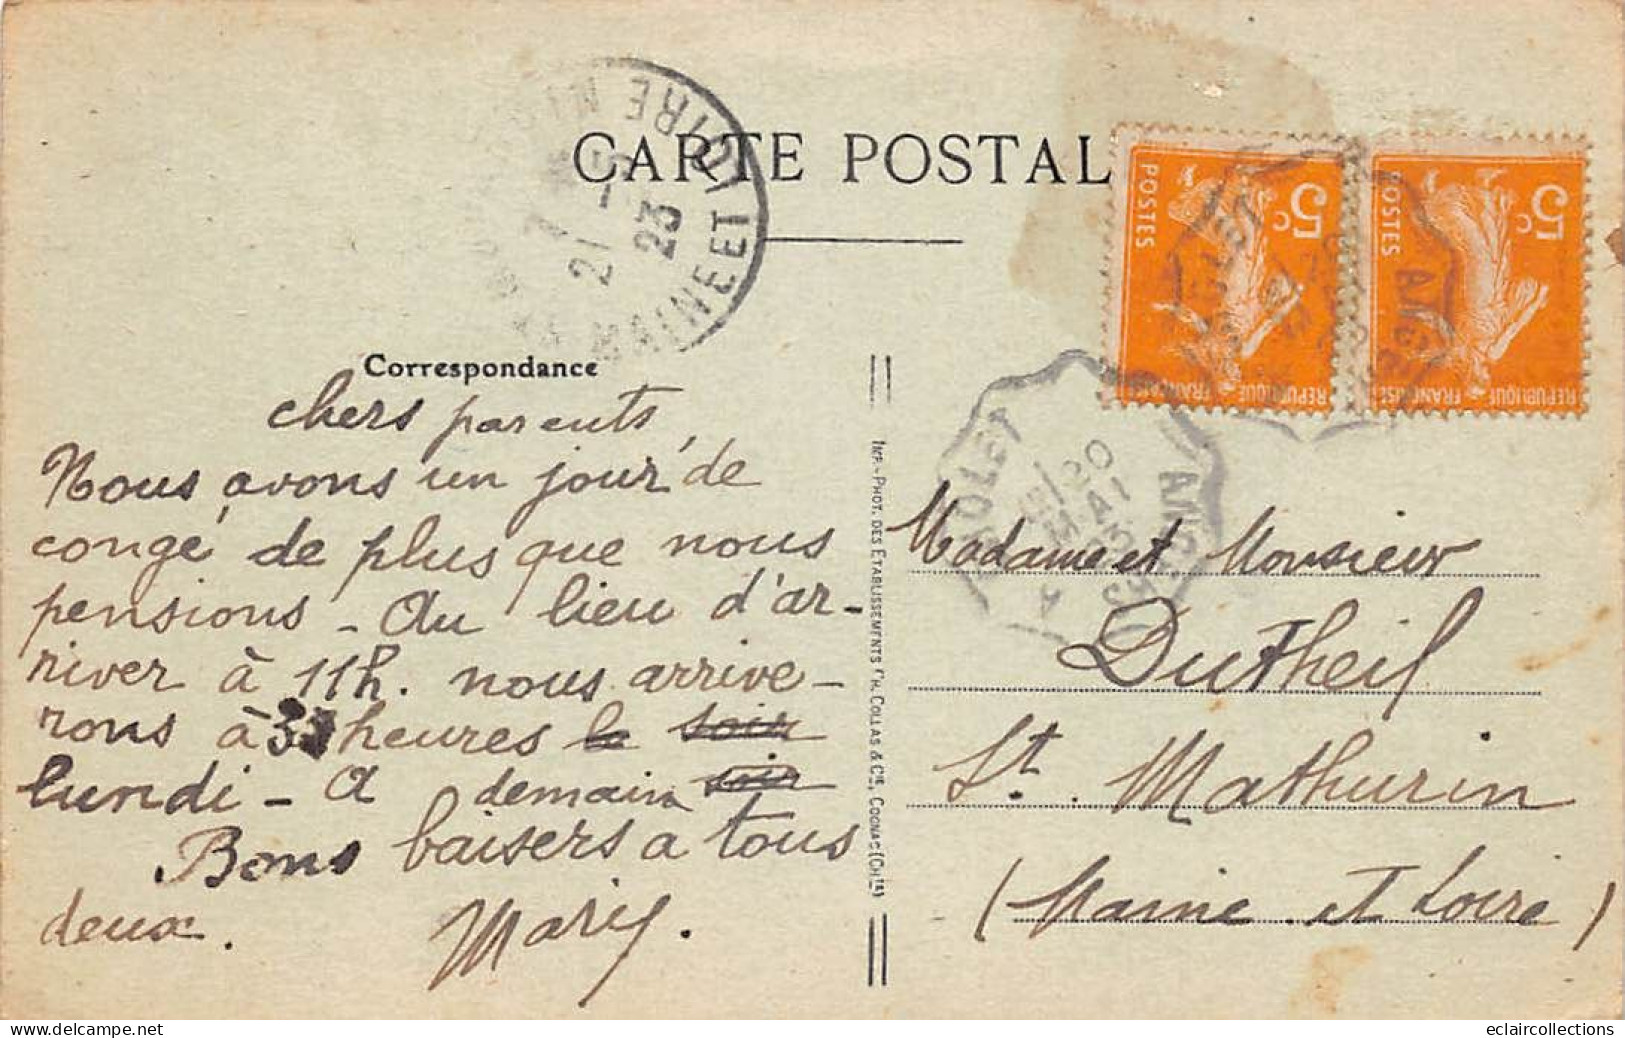 CARTE POSTALE
Correspondance
chers parents,
Nous avons un jour de
congé de plus que nous
pensions - Au lieu d'ar-
river à 11h. nous arrive-
rons à 3 heures le soir
lundi - A demain soir
Bons baisers a tous
deux. Mary.
LOIRE
MAINE ET
21 - 5
23
CHOLET
ANGERS
20
MAI
POSTES
5c
REPUBLIQUE FRANÇAISE
POSTES
5c
REPUBLIQUE FRANÇAISE
IMP.-PHOT. DES ETABLISSEMENTS CH. COLLAS & Cie, COGNAC (Chte)
Madame et Monsieur
Dutheil
St. Mathurin
(Maine et Loire)
eclaircollections